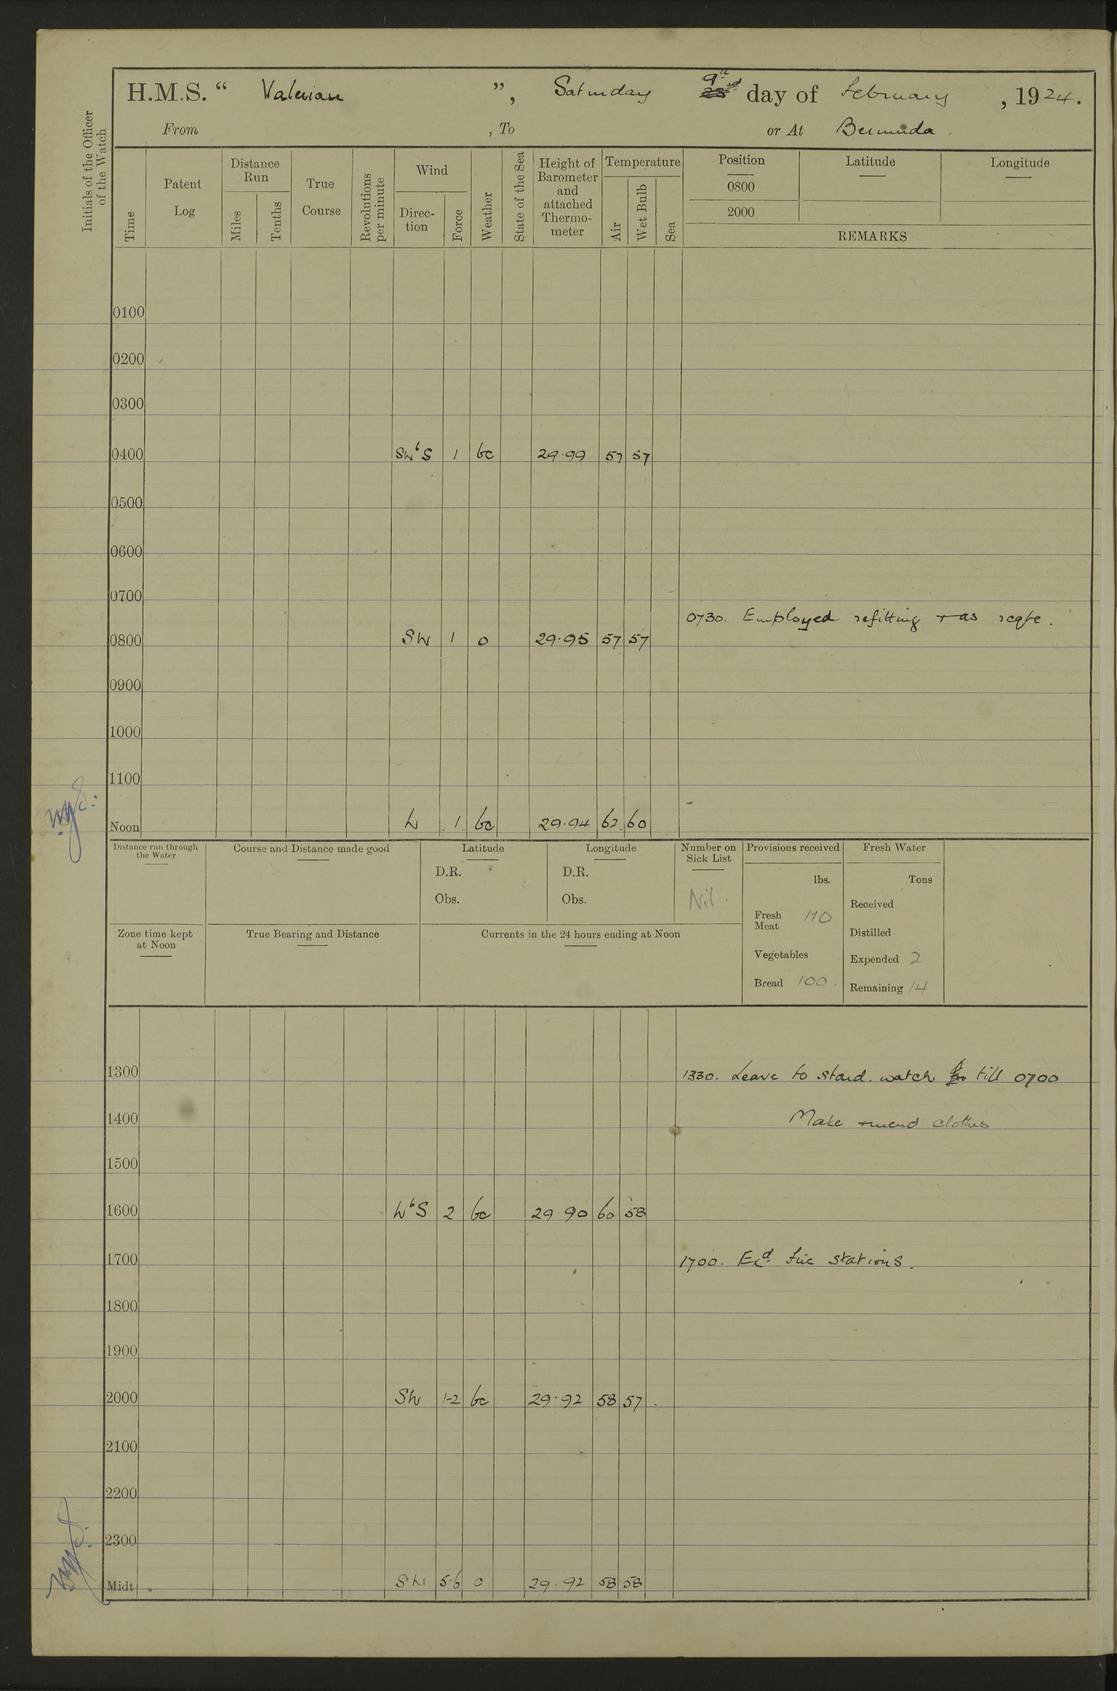 H.M.S. “ Valerian ”, Saturday 9th day of February, 1924.
From , To or At Bermuda.
Initials of the Officer of the Watch
Time
Patent Log
Distance Run
Miles
Tenths
True Course
Revolutions per minute
Wind
Direction
Force
Weather
State of the Sea
Height of Barometer and attached Thermometer
Temperature
Air
Wet Bulb
Sea
Position Latitude Longitude
0800
2000
REMARKS
0100
0200
0300
0400 SWbS 1 bc 29.99 57 57
0500
0600
0700
0730. Employed refitting + as reqte.
0800 SW 1 o 29.95 57 57
0900
1000
1100
Noon W 1 bc 29.94 62 60
Distance run through the Water
Course and Distance made good
Latitude
D.R.
Obs.
Longitude
D.R.
Obs.
Number on Sick List
Nil.
Provisions received
lbs.
Fresh Meat 110
Vegetables
Bread 100.
Fresh Water
Tons
Received
Distilled
Expended 2
Remaining 14
Zone time kept at Noon
True Bearing and Distance
Currents in the 24 hours ending at Noon
1300 1330. Leave to stard. watch till 0700
1400 Make + mend clothes
1500
1600 WbS 2 bc 29 90 60 58
1700 1700. Exd. fire stations.
1800
1900
2000 SW 1-2 bc 29.92 58 57
2100
2200
2300
Midt. SW 5-6 o 29.92 58 58